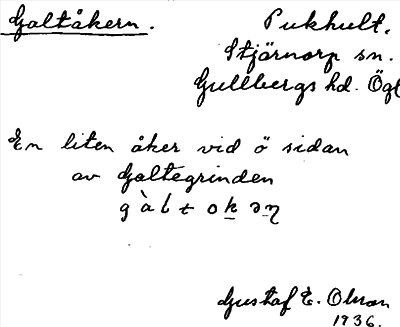 Galtåkern. Pukhult.
Stjärnorp sn.
Gullbergs hd. Ögl
En liten åker vid ö sidan
av Galtegrinden
g à l t o k ə n
Gustaf E. Olsson
1936.